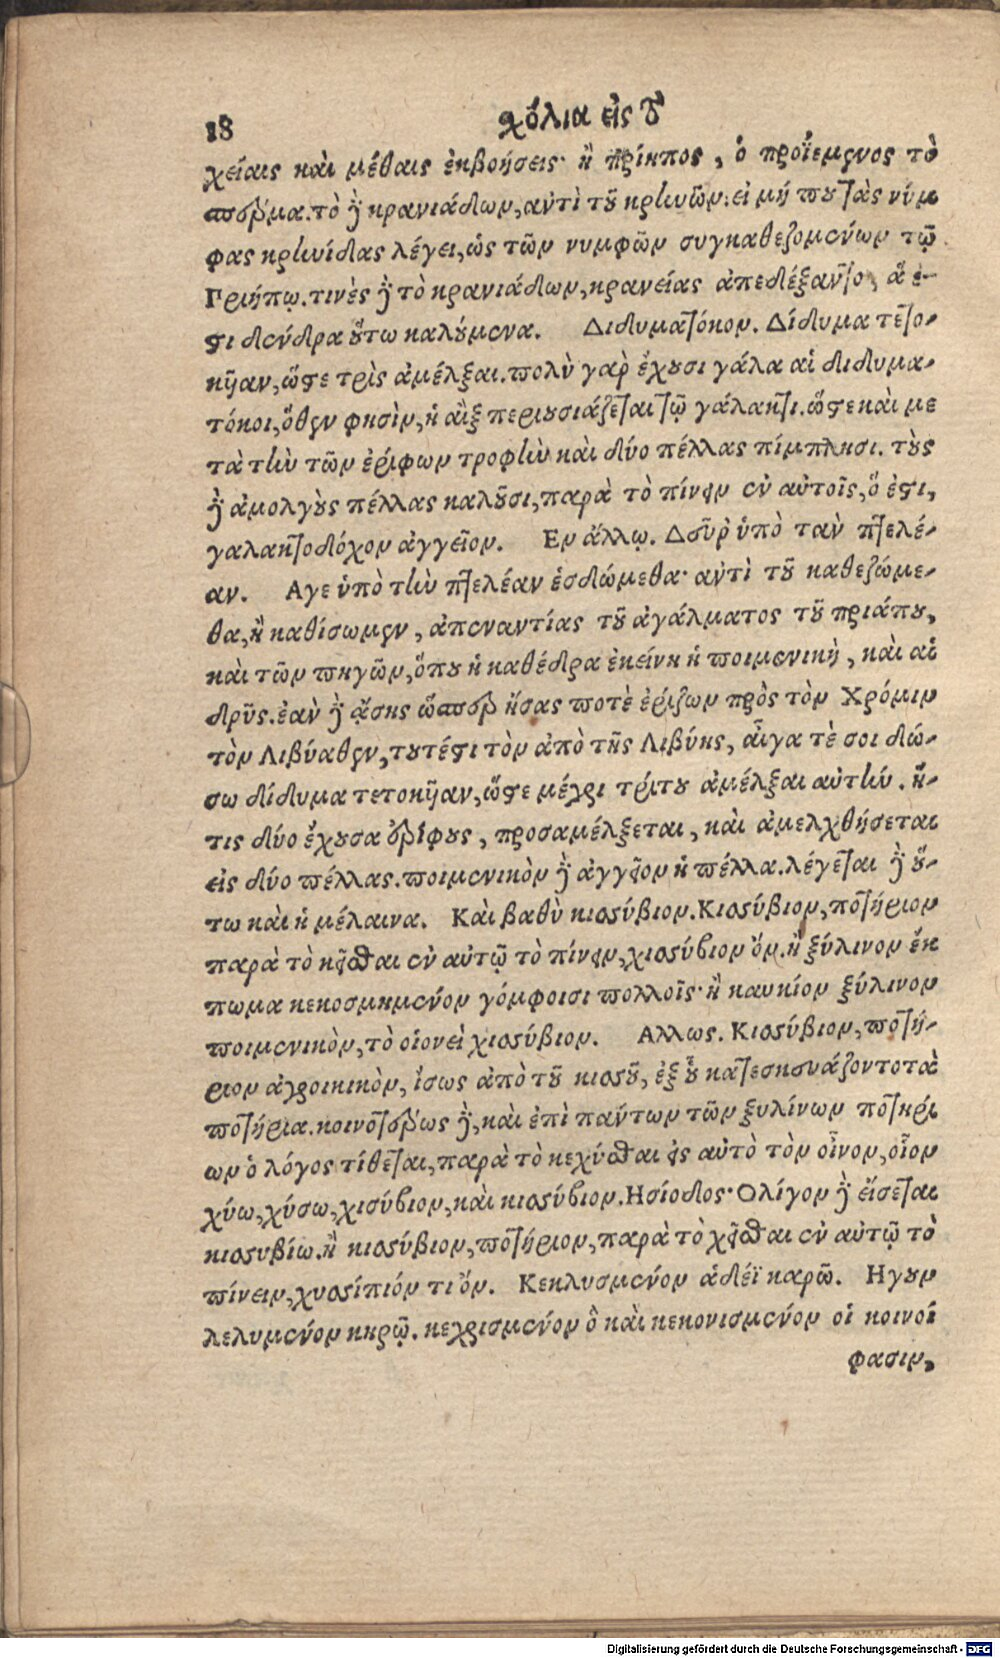 18 σχόλια εἰς τὸ
χείαις καὶ μέθαις ἐκβοήσεις· ἢ πρίηπος, ὁ προϊέμενος τὸ
σπέρμα. τὸ δὲ κρανιάδων, αὐτὶ τοῦ κρηνῶν· εἰ μή που τὰς νύμ
φας κρηνίδας λέγει, ὡς τῶν νυμφῶν συγκαθεζομένων τῷ
Πριήπῳ. τινὲς δὲ τὸ κρανιάδων, κρανείας ἀπεδέξαντο, ἅ ἐ-
στι δένδρα οὕτω καλούμενα. Διδυματόκον. Δίδυμα τετο-
κῆαν, ὥστε τρὶς ἀμέλξαι. πολὺ γὰρ ἔχουσι γάλα αἱ διδυμα-
τόκοι, ὅθεν φησὶν, ἡ αἲξ περιουσιάζεται τῷ γάλακτι. ὥστε καὶ με
τὰ τὴν τῶν ἐρίφων τροφὴν καὶ δύο πέλλας πίμπλησι. τοὺς
δὲ ἀμολγοὺς πέλλας καλοῦσι, παρὰ τὸ πίνειν ἐν αὐτοῖς, ὅ ἐστι,
γαλακτοδόχον ἀγγεῖον. Εν ἄλλῳ. Δεῦρ ὑπὸ ταὺ πτελέ-
αν. Αγε ὑπὸ τὴν πτελέαν ἑσδώμεθα· αὐτὶ τοῦ καθεζώμε-
θα, ἢ καθίσωμεν, ἀπεναντίας τοῦ ἀγάλματος τοῦ πριάπου,
καὶ τῶν πηγῶν, ὅπου ἡ καθέδρα ἐκείνη ἡ ποιμενικὴ, καὶ αἱ
δρῦς. ἐὰν δὲ ᾄσῃς ὥσπερ ᾖσας ποτὲ ἐρίζων πρὸς τὸν Χρόμιν
τὸν Λιβύαθεν, τουτέστι τὸν ἀπὸ τῆς Λιβύης, αἶγα τὲ σοι δώ-
σω δίδυμα τετοκῆαν, ὥστε μέχρι τρίτου ἀμέλξαι αὐτήν. ἥ-
τις δύο ἔχουσα ἐρίφους, προσαμέλξεται, καὶ ἀμελχθήσεται
εἰς δύο πέλλας. ποιμενικὸν δὲ ἀγγεῖον ἡ πέλλα. λέγεται δὲ οὕ-
τω καὶ ἡ μέλαινα. Καὶ βαθὺ κισσύβιον. Κισσύβιον, ποτήριον
παρὰ τὸ κεῖσθαι ἐν αὐτῷ τὸ πίνειν, χισσύβιον ὄν. ἢ ξύλινον ἔκ
πωμα κεκοσμημένον γόμφοισι πολλοῖς· ἢ καυκίον ξύλινον
ποιμενικὸν, τὸ οἱονεὶ χισσύβιον. Αλλως. Κισσύβιον, ποτή-
ριον ἀγροικικὸν, ἴσως ἀπὸ τοῦ κισσοῦ, ἐξ οὗ κατεσκευάζοντο τὰ
ποτήρια. κοινοτέρως δὲ, καὶ ἐπὶ παύτων τῶν ξυλίνων ποτηρί
ων ὁ λόγος τίθεται, παρὰ τὸ κεχύσθαι εἰς αὐτὸ τὸν οἶνον, οἷον
χύω, χύσω, χισύβιον, καὶ κισσύβιον. Ησίοδος· Ολίγον δὲ εἴσεται
κισσυβίω. ἢ κισσύβιον, ποτήριον, παρὰ τὸ χεῖσθαι ἐν αὐτῷ τὸ
πίνειν, χυσσίπιόν τι ὄν. Κεκλυσμένον ἁδέϊ καρῶ. Ηγουν
λελυμένον κηρῷ. κεχρισμένον ὃ καὶ κεκονισμένον οἱ κοινοί
φασιν,
Digitalisierung gefördert durch die Deutsche Forschungsgemeinschaft - DFG